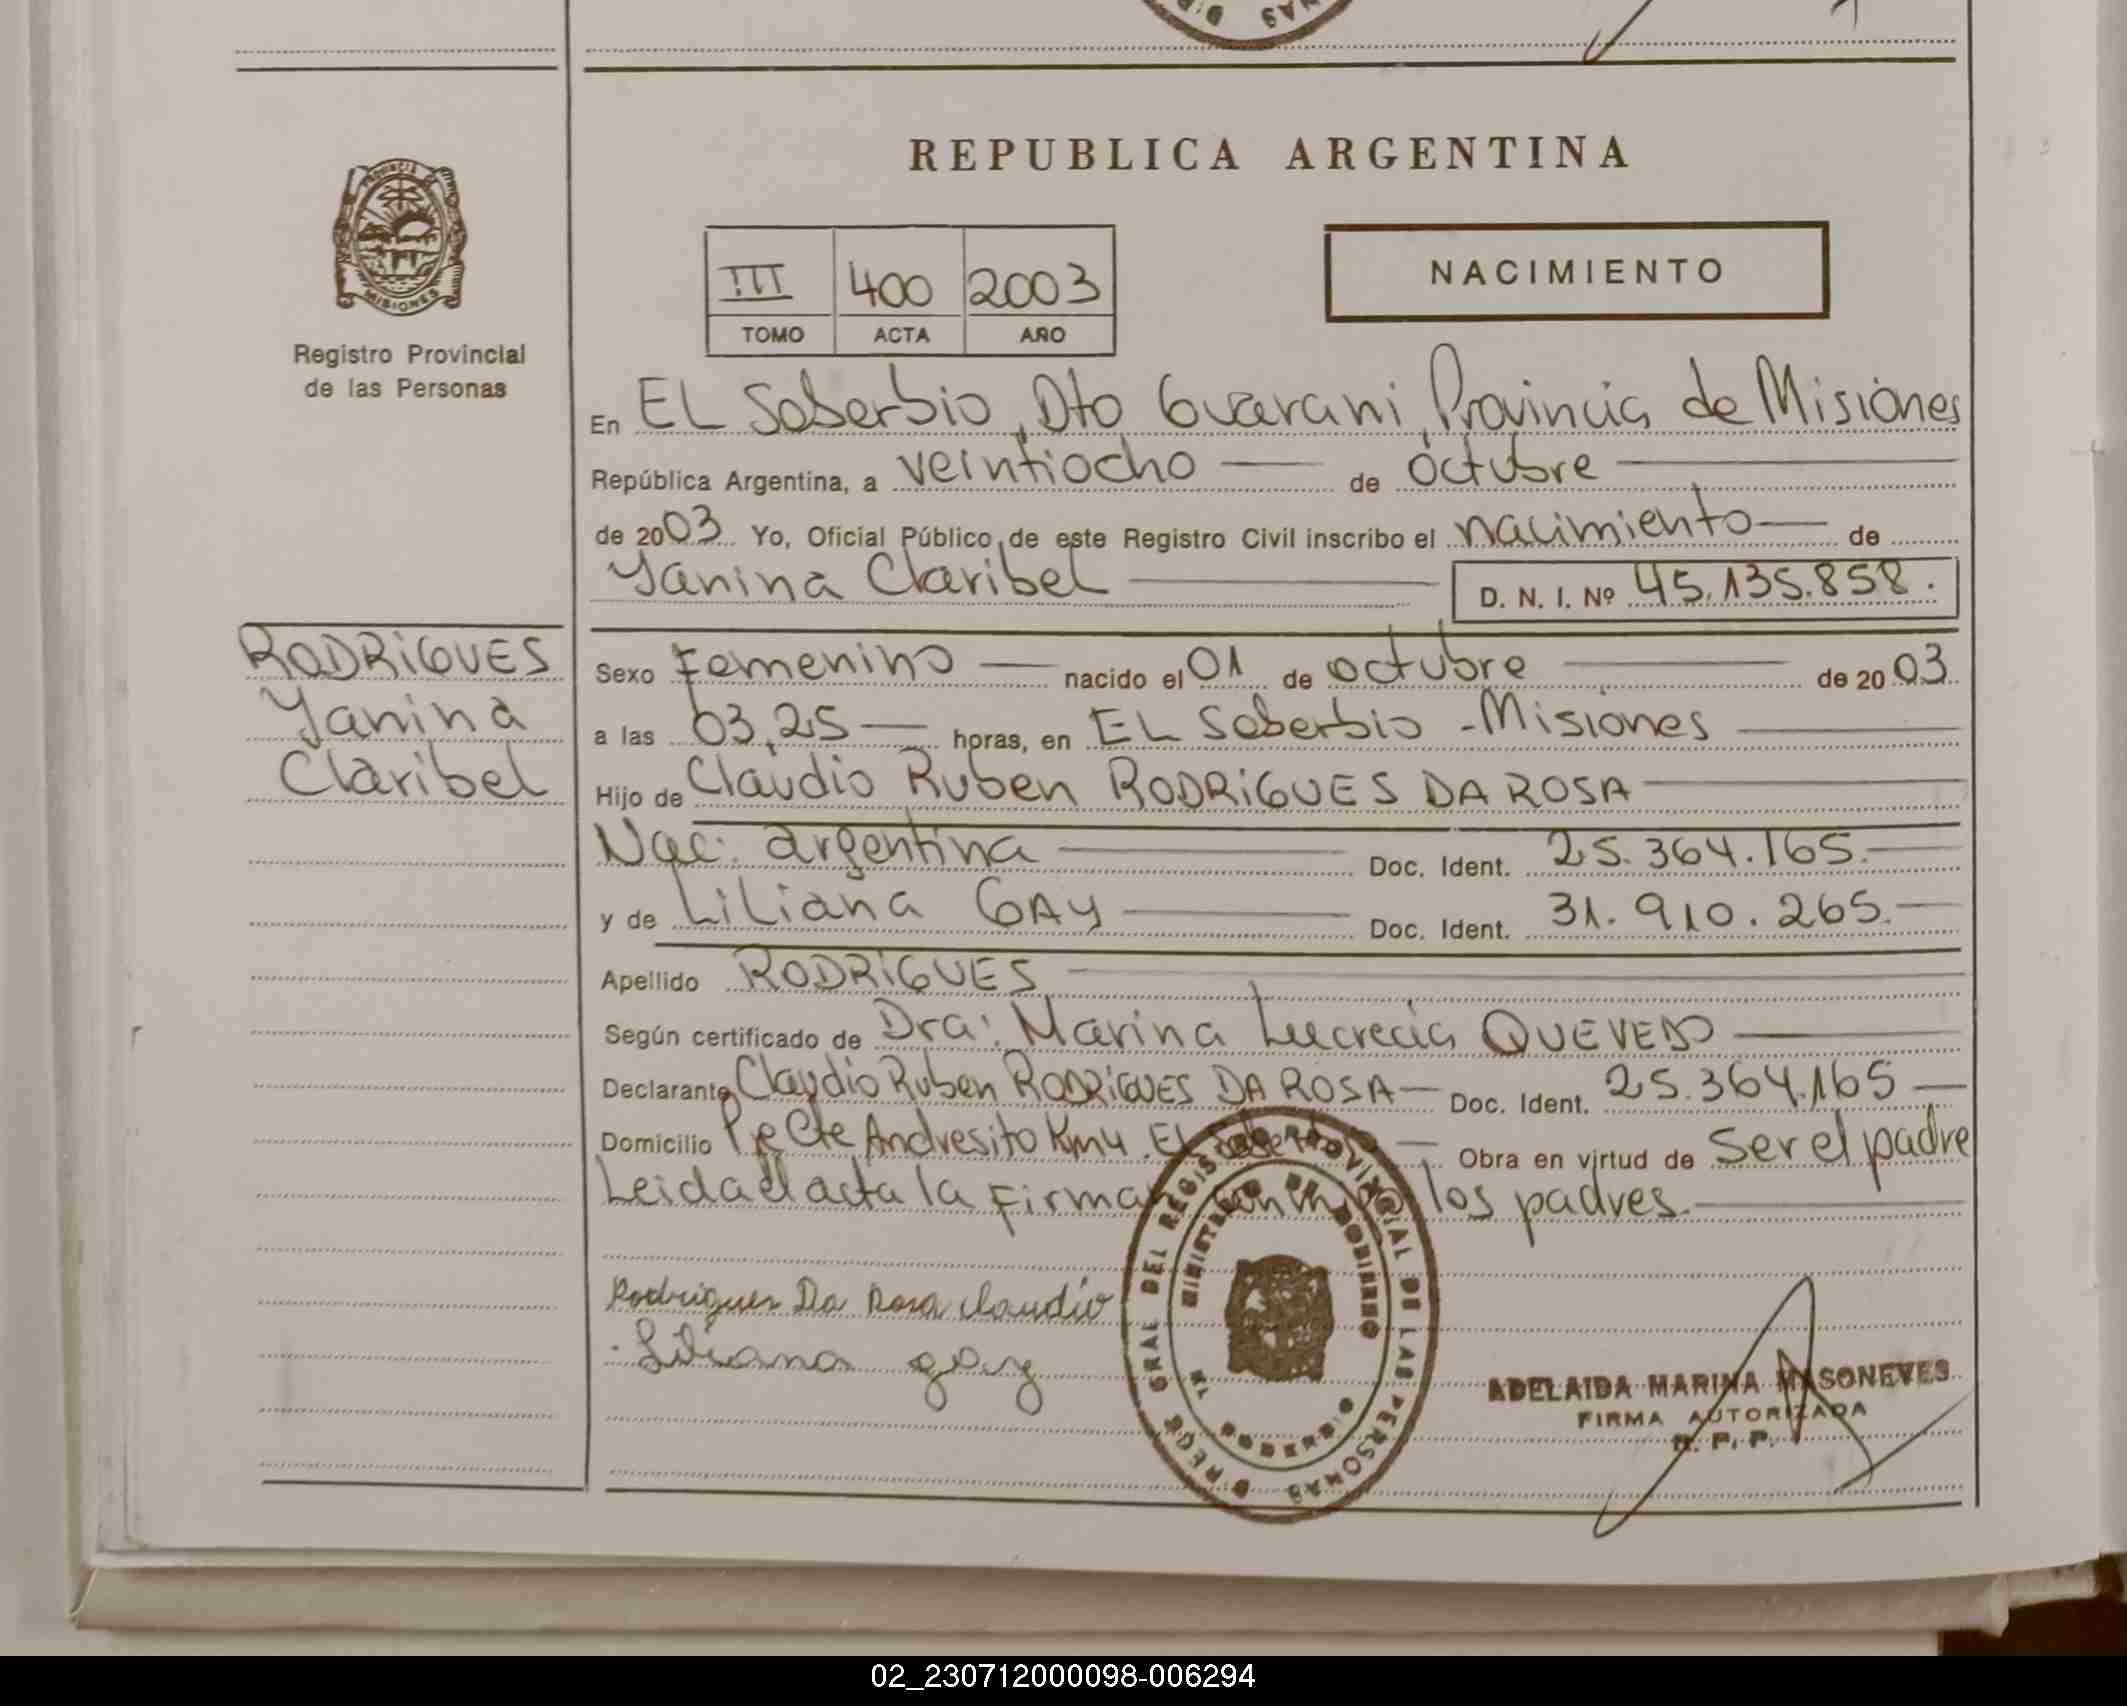 REPUBLICA ARGENTINA
PROVINCIA DE MISIONES
Registro Provincial
de las Personas
III 400 2003
TOMO ACTA AÑO
NACIMIENTO
En EL Soberbio, Dto Guarani, Provincia de Misiones
República Argentina, a veintiocho de octubre
de 2003 Yo, Oficial Público de este Registro Civil inscribo el nacimiento de
Yanina Claribel D. N. I. Nº 45.135.858.
RODRiGUES
Yanina
Claribel
Sexo Femenino nacido el 01 de octubre de 2003
a las 03,25 horas, en EL Soberbio - Misiones
Hijo de Claudio Ruben RODRiGUES DA ROSA
Nac. argentina Doc. Ident. 25.364.165.
y de LiLiana GAY Doc. Ident. 31.910.265.
Apellido RODRiGUES
Según certificado de Dra: Marina Lucrecia QUEVEDO
Declarante Claudio Ruben RODRiGUES DA ROSA Doc. Ident. 25.364.165
Domicilio Cte Andresito Km4. EL Soberbio Obra en virtud de Ser el padre
Leida el acta la Firman los padres.
Rodrigues Da Rosa Claudio
Liliana gay
DIREC GRAL DEL REGISTRO PROVINCIAL DE LAS PERSONAS
MINISTERIO DE GOBIERNO
EL SOBERBIO
ADELAIDA MARINA MASONEVES
FIRMA AUTORIZADA
R. P. P.
02_230712000098-006294